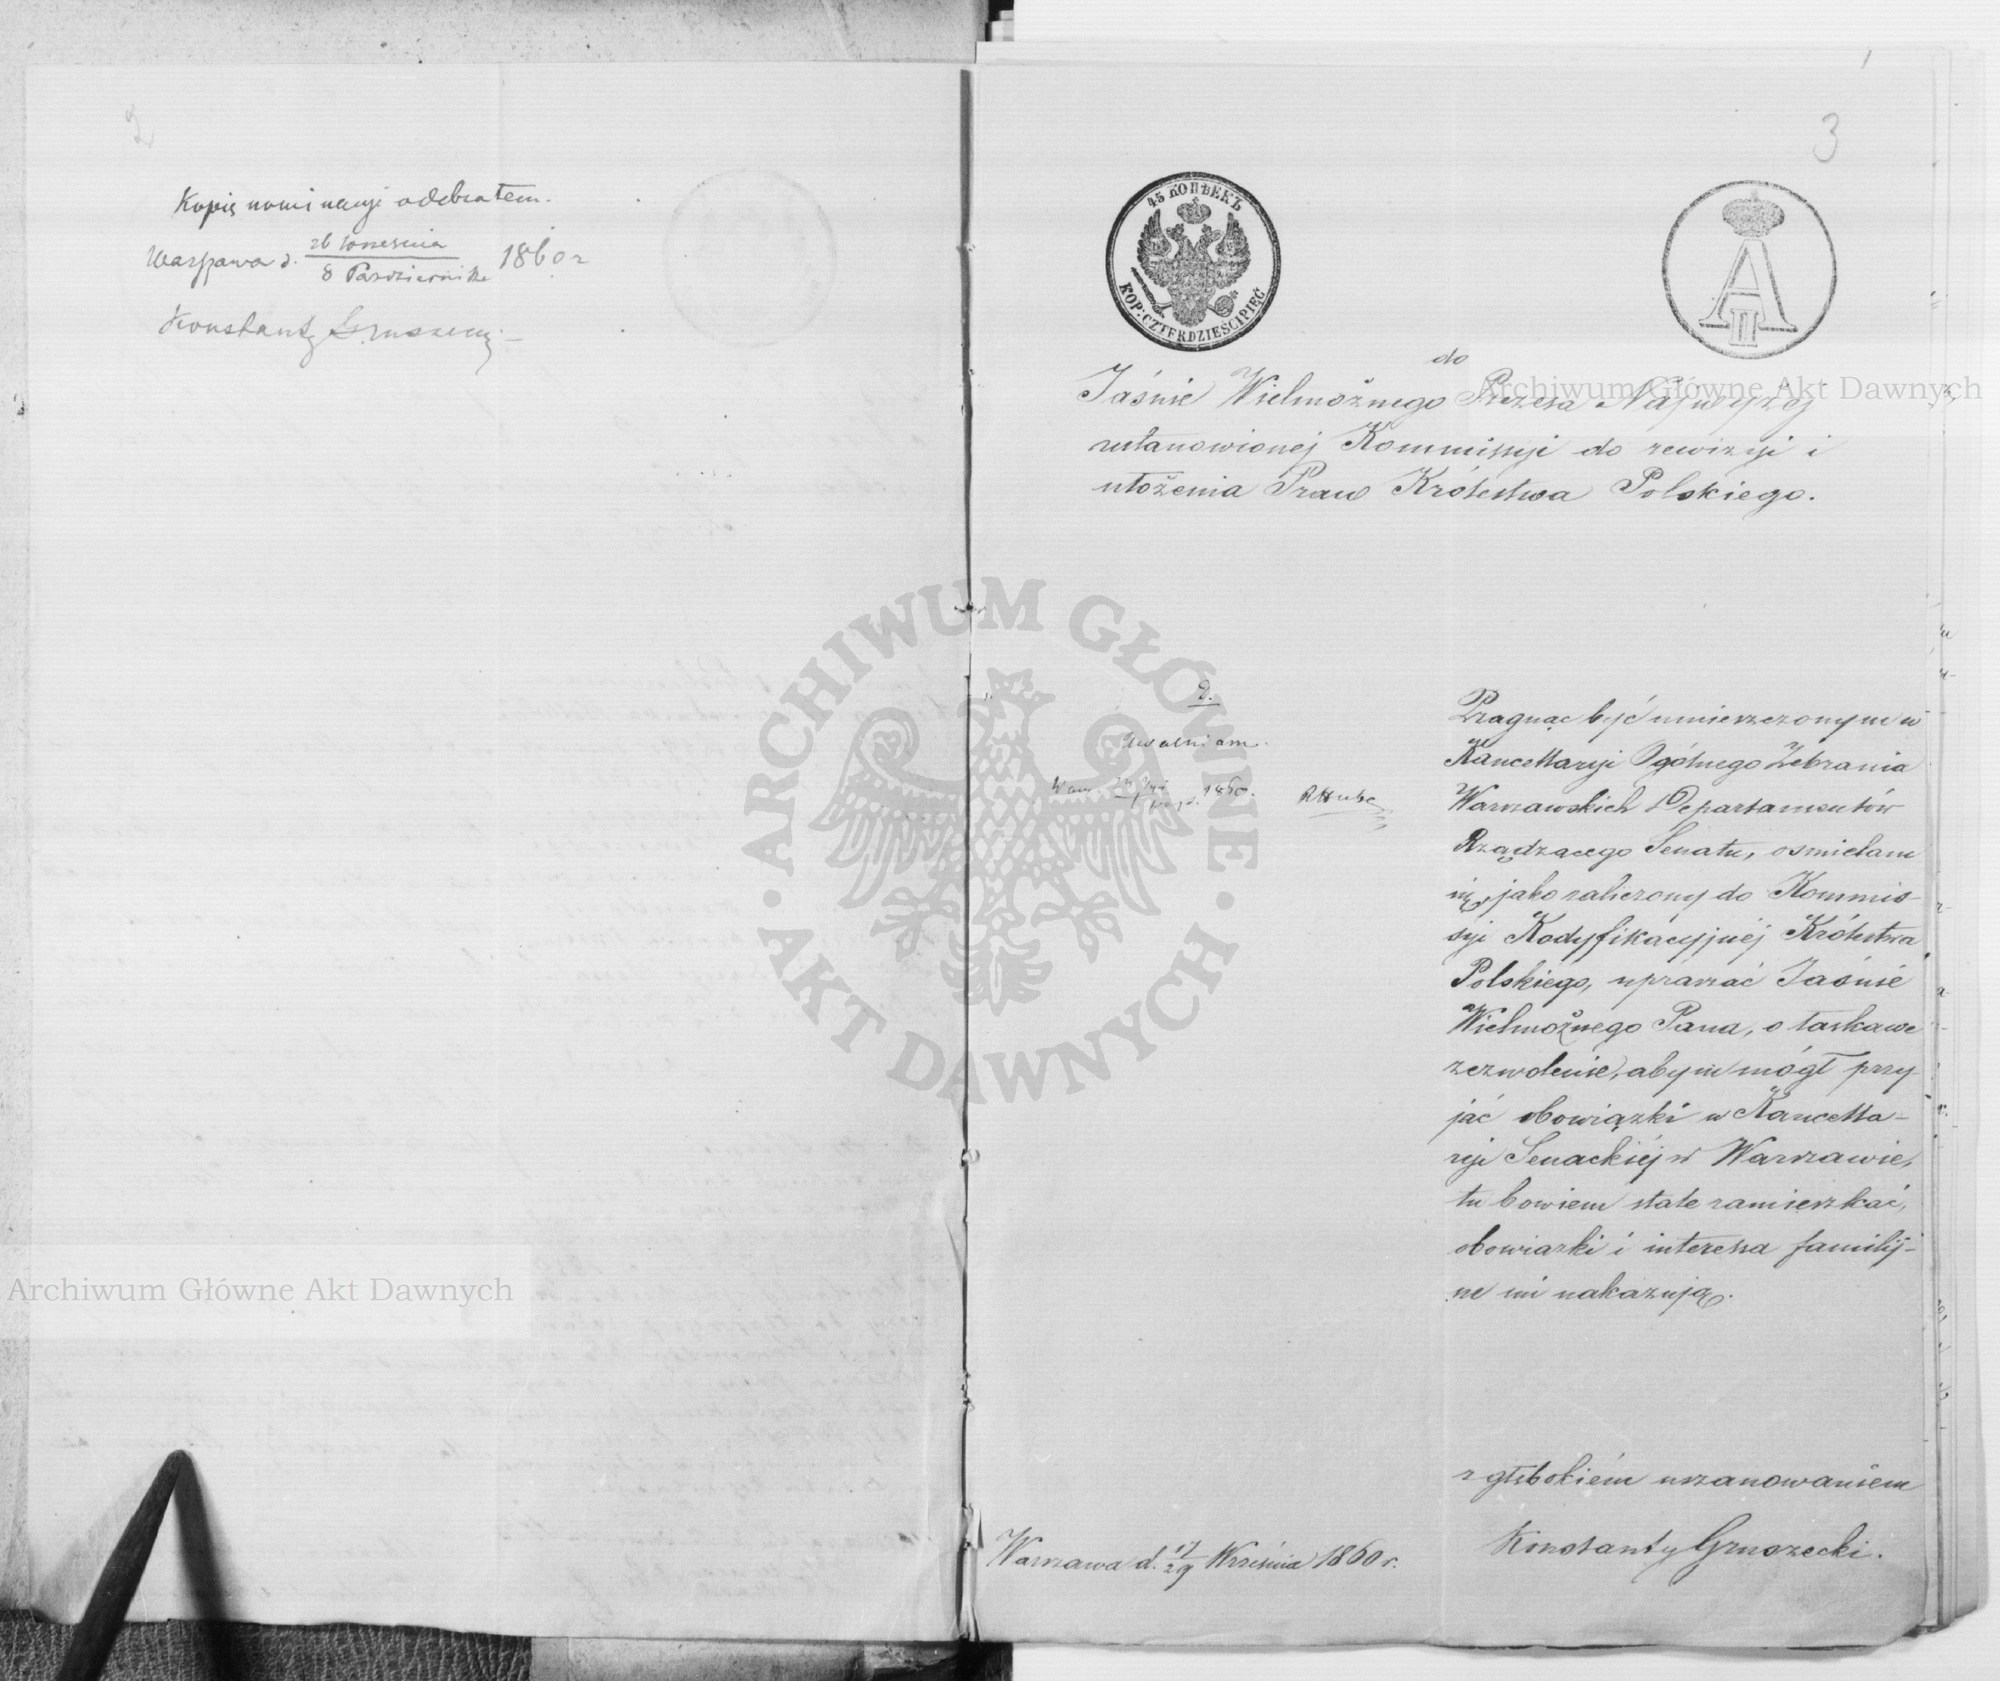 2
Kopię nominacyi odebrałem.
Warszawa d. 26 Września / 8 Października 1860 r
Konstanty Gruszecki
3
45 КОПѢЕКЪ
KOP: CZTERDZIEŚCI PIĘĆ
A II
do
Jaśnie Wielmożnego Prezesa Najwyżej
ustanowionej Kommissyi do rewizyi i
ułożenia Praw Królestwa Polskiego.
Uwalniam.
1860.
RHube
Pragnąc być umieszczonym w
Kancellaryi Ogólnego Zebrania
Warszawskich Departamentów
Rządzącego Senatu, ośmielam
się, jako zaliczony do Kommis-
syi Kodyfikacyjnéj Królestwa
Polskiego, upraszać Jaśnie
Wielmożnego Pana, o łaskawe
zezwolenie, abym mógł przy-
jąć obowiązki w Kancella-
ryi Senackiéj w Warszawie,
tu bowiem stale zamieszkać,
obowiązki i interessa familij-
ne mi nakazują.
z głębokiém uszanowaniem
Konstanty Gruszecki.
Warszawa d. 17/29 Września 1860 r.
Archiwum Główne Akt Dawnych
ARCHIWUM GŁÓWNE • AKT DAWNYCH •
Archiwum Główne Akt Dawnych